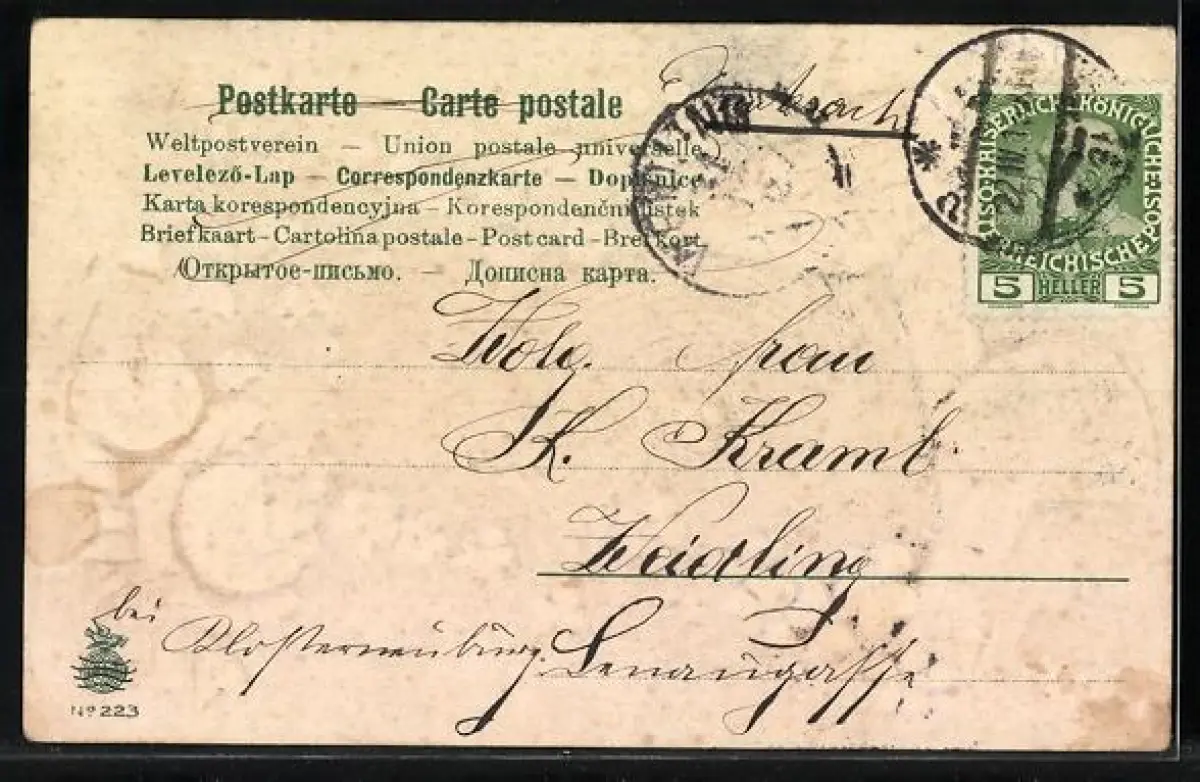 Postkarte — Carte postale
Weltpostverein — Union postale universelle
Levelező-Lap — Correspondenzkarte — Dopisnice
Karta korespondencyjna - Korespondenční lístek
Briefkaart - Cartolina postale - Post card - Brefkort
Открытое-письмо. — Дописна карта.
KAISERLICHE KÖNIGLICHE ÖSTERREICHISCHE POST
5 HELLER 5
22 III
Wolg. Frau
K. Kraml
Weidling
bei
Klosterneuburg. Lenaugasse
Nº 223